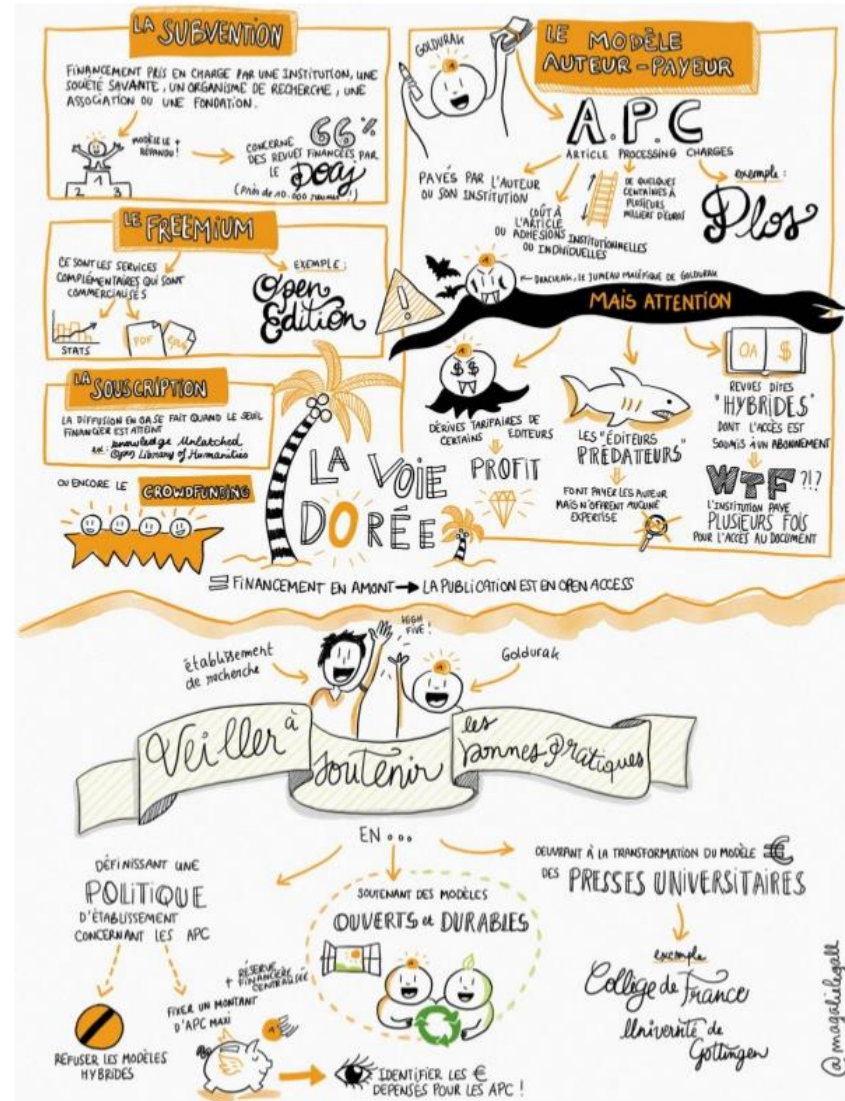 LA SUBVENTION
FINANCEMENT PRIS EN CHARGE PAR UNE INSTITUTION, UNE
SOCIÉTÉ SAVANTE, UN ORGANISME DE RECHERCHE, UNE
ASSOCIATION OU UNE FONDATION.
MODÈLE LE +
RÉPANDU !
2 1 3
CONCERNE 66%
DES REVUES FINANCÉES PAR
LE DOAJ
(Près de 10.000 revues !)
LE FREEMIUM
CE SONT LES SERVICES
COMPLÉMENTAIRES QUI SONT
COMMERCIALISÉS
STATS
PDF
EXEMPLE :
Open
Edition
LA SOUSCRIPTION
LA DIFFUSION EN OA SE FAIT QUAND LE SEUIL
FINANCIER EST ATTEINT
ex: Knowledge Unlatched
Open Library of Humanities
OU ENCORE LE CROWDFUNDING
GOLDURAK
LE MODÈLE
AUTEUR-PAYEUR
A.P.C
ARTICLE PROCESSING CHARGES
PAYÉS PAR L'AUTEUR
OU SON INSTITUTION
COÛT À
L'ARTICLE
OU ADHÉSIONS INSTITUTIONNELLES
OU INDIVIDUELLES
DE QUELQUES
CENTAINES À
PLUSIEURS
MILLIERS D'EUROS
exemple :
Plos
DRACULAK, LE JUMEAU MALÉFIQUE DE GOLDURAK
!
MAIS ATTENTION
$ $
DÉRIVES TARIFAIRES DE
CERTAINS EDITEURS
PROFIT
LES "ÉDITEURS
PRÉDATEURS"
FONT PAYER LES AUTEUR
MAIS N'OFFRENT AUCUNE
EXPERTISE
OA $
REVUES DITES
"HYBRIDES"
DONT L'ACCÈS EST
SOUMIS À UN ABONNEMENT
WTF ?!?
L'INSTITUTION PAYE
PLUSIEURS FOIS
POUR L'ACCÈS AU DOCUMENT
LA VOIE
DORÉE
FINANCEMENT EN AMONT → LA PUBLICATION EST EN OPEN ACCESS
établissement
de recherche
HIGH
FIVE !
Goldurak
Veiller à
soutenir
les
bonnes pratiques
EN...
DÉFINISSANT UNE
POLITIQUE
D'ÉTABLISSEMENT
CONCERNANT LES APC
REFUSER LES MODÈLES
HYBRIDES
FIXER UN MONTANT
D'APC MAXI
+ RÉSERVE
FINANCIÈRE
CENTRALISÉE
IDENTIFIER LES €
DEPENSÉS POUR LES APC !
SOUTENANT DES MODÈLES
OUVERTS et DURABLES
OEUVRANT À LA TRANSFORMATION DU MODÈLE €
DES PRESSES UNIVERSITAIRES
exemple
Collège de France
Université de
Gottingen
@magalielegall